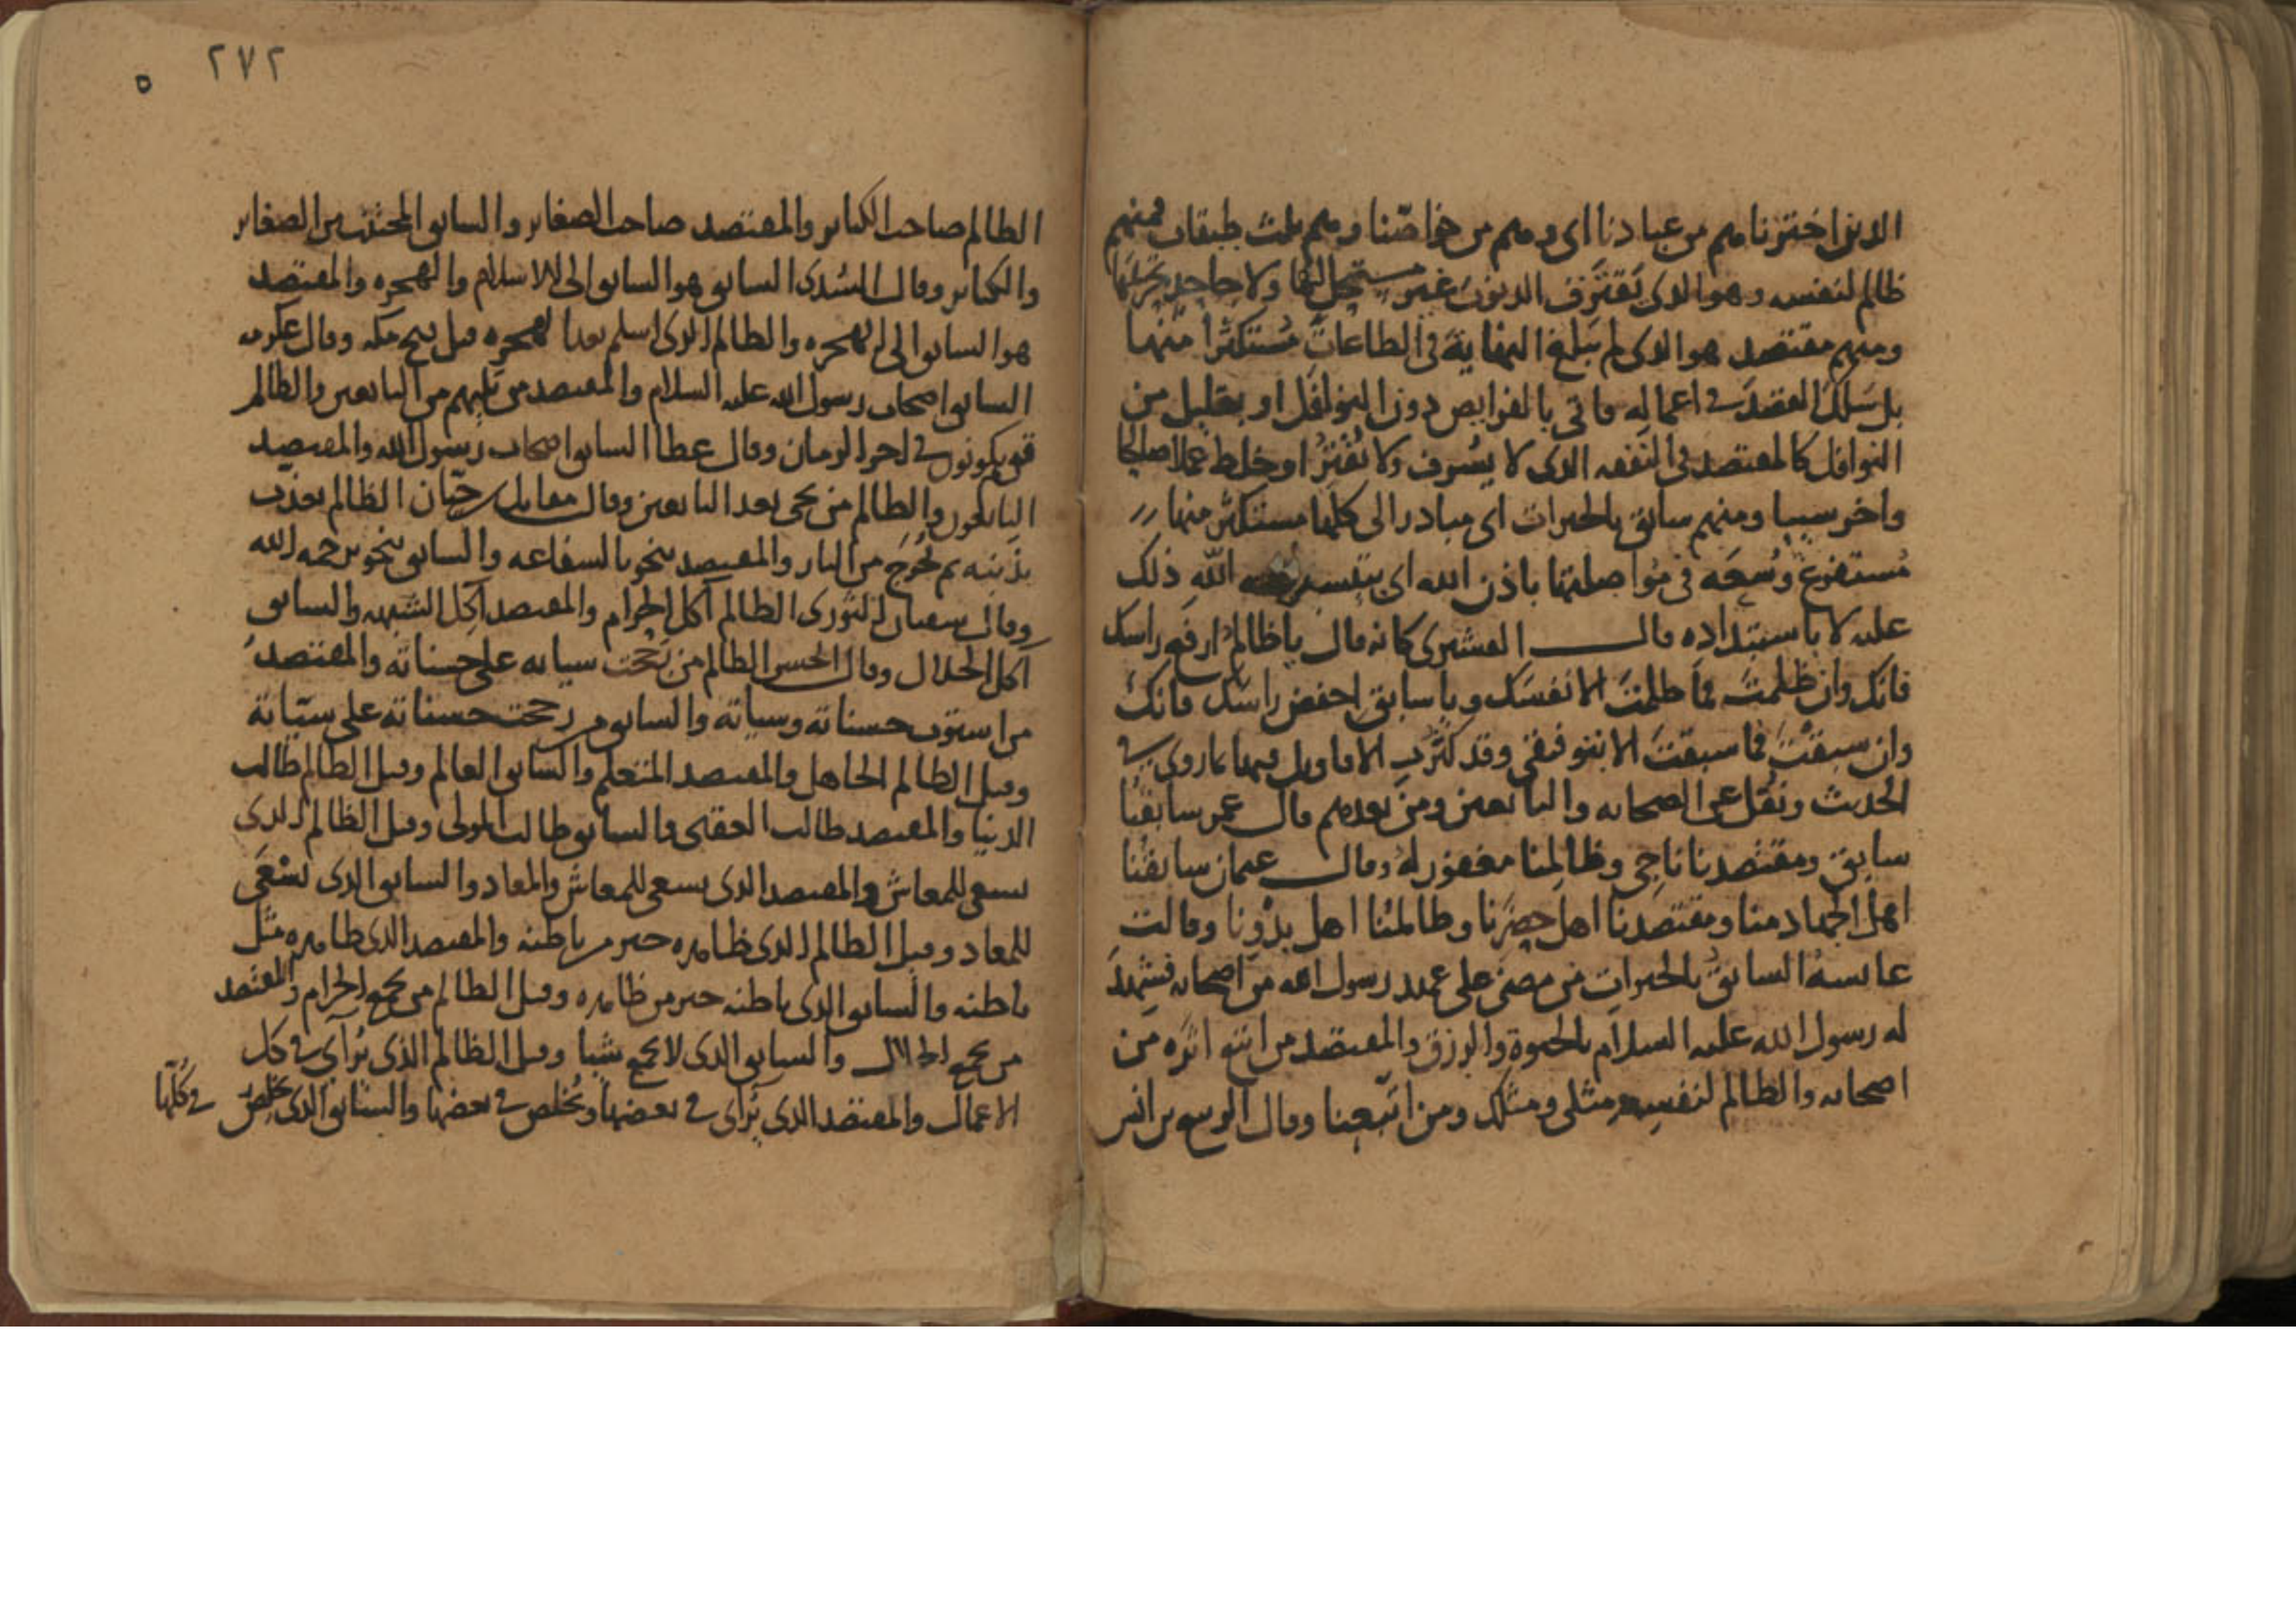 الذين اخترنا منهم من عبادنا اى ومنهم من خواصّنا ومنهم ثلث طبقات فمنهم
ظالم لنفسه وهو الذى يَقتَرِف الذنوبَ غير مستحِلٍّ لها ولا جاحد تحريمَها
ومنهم مقتصد هو الذى لم يَبلغ النهاية فى الطاعات مُستكثرا منها
بل سَلَك القصدَ فى اعماله فاتى بالفرايض دون النوافل او بقليل من
النوافل كالمقتصد فى النفقه الذى لا يُسْرف ولا يُقتِرُ او خلط عملا صالحا
واخر سييا ومنهم سابق بالخيرات اى مبادر الى كلها مستكثر منها
مُستفرغ وُسْعَه فى مُواصلتها باذن الله اى بتيسير الله ذلك
عليه لا باستبداده قال القشيرى كانه قال يا ظالم ارفع راسك
فانك وان ظلمتَ فما ظلمتَ الا نفسَك ويا سابق اخفض راسك فانك
وان سبقتَ فما سبقتَ الا بتوفيقى وقد كثرت الاقاويل فيها مما روى فى
الحديث ونُقل عن الصحابه والتابعين ومن بعدهم قال عمر سابقنا
سابق ومقتصدنا ناجى وظالمنا مغفور له وقال عثمان سابقنا
اهل الجهاد منا ومقتصدنا اهل حضرنا وظالمنا اهل بدونا وقالت
عايشة السابق بالخيرات من مضى على عهد رسول الله من اصحابه فشهد
له رسول الله عليه السلام بالحيوة والرزق والمقتصد من اتبع اثره من
اصحابه والظالم لنفسه مثلى ومثلك ومن اتبعنا وقال الربيع بن انس
٢٧٢
٥
الظالم صاحب الكباير والمقتصد صاحب الصغاير والسابق المجتنب من الصغاير
والكباير وقال السُدى السابق هو السابق الى الاسلام والهجره والمقتصد
هو السابق الى الهجره والظالم الذى اسلم بعد الهجره قبل فتح مكه وقال عكرمه
السابق اصحاب رسول الله عليه السلام والمقتصد من يليهم من التابعين والظالم
قوم يكونون فى اخر الزمان وقال عطا السابق اصحاب رسول الله والمقتصد
التابعون والظالم من يجى بعد التابعين وقال مقاتل بن حيّان الظالم يعذب
بذنبه ثم يُخرَج من النار والمقتصد ينجو بالشفاعه والسابق ينجو برحمه الله
وقال سفيان الثورى الظالم آكل الحرام والمقتصد آكل الشبهه والسابق
آكل الحلال وقال الحسن الظالم من رَجَحت سياته على حسناته والمقتصد
من استوت حسناته وسياته والسابق من رجحت حسناته على سيّاته
وقيل الظالم الجاهل والمقتصد المتعلم والسابق العالم وقيل الظالم طالب
الدنيا والمقتصد طالب العقبى والسابق طالب المولى وقيل الظالم الذى
يسعى للمعاش والمقتصد الذى يسعى للمعاش والمعاد والسابق الذى يسْعَى
للمعاد وقيل الظالم الذى ظاهره خير من باطنه والمقتصد الذى ظاهره مثل
باطنه والسابق الذى باطنه خير من ظاهره وقيل الظالم من يجمع الحرام والمقتصد
من يجمع الحلال والسابق الذى لا يجمع شيا وقيل الظالم الذى يُرآى فى كل
الاعمال والمقتصد الذى يُرآى فى بعضها ويُخلص فى بعضها والسابق الذى يُخلِص فى كُلّها